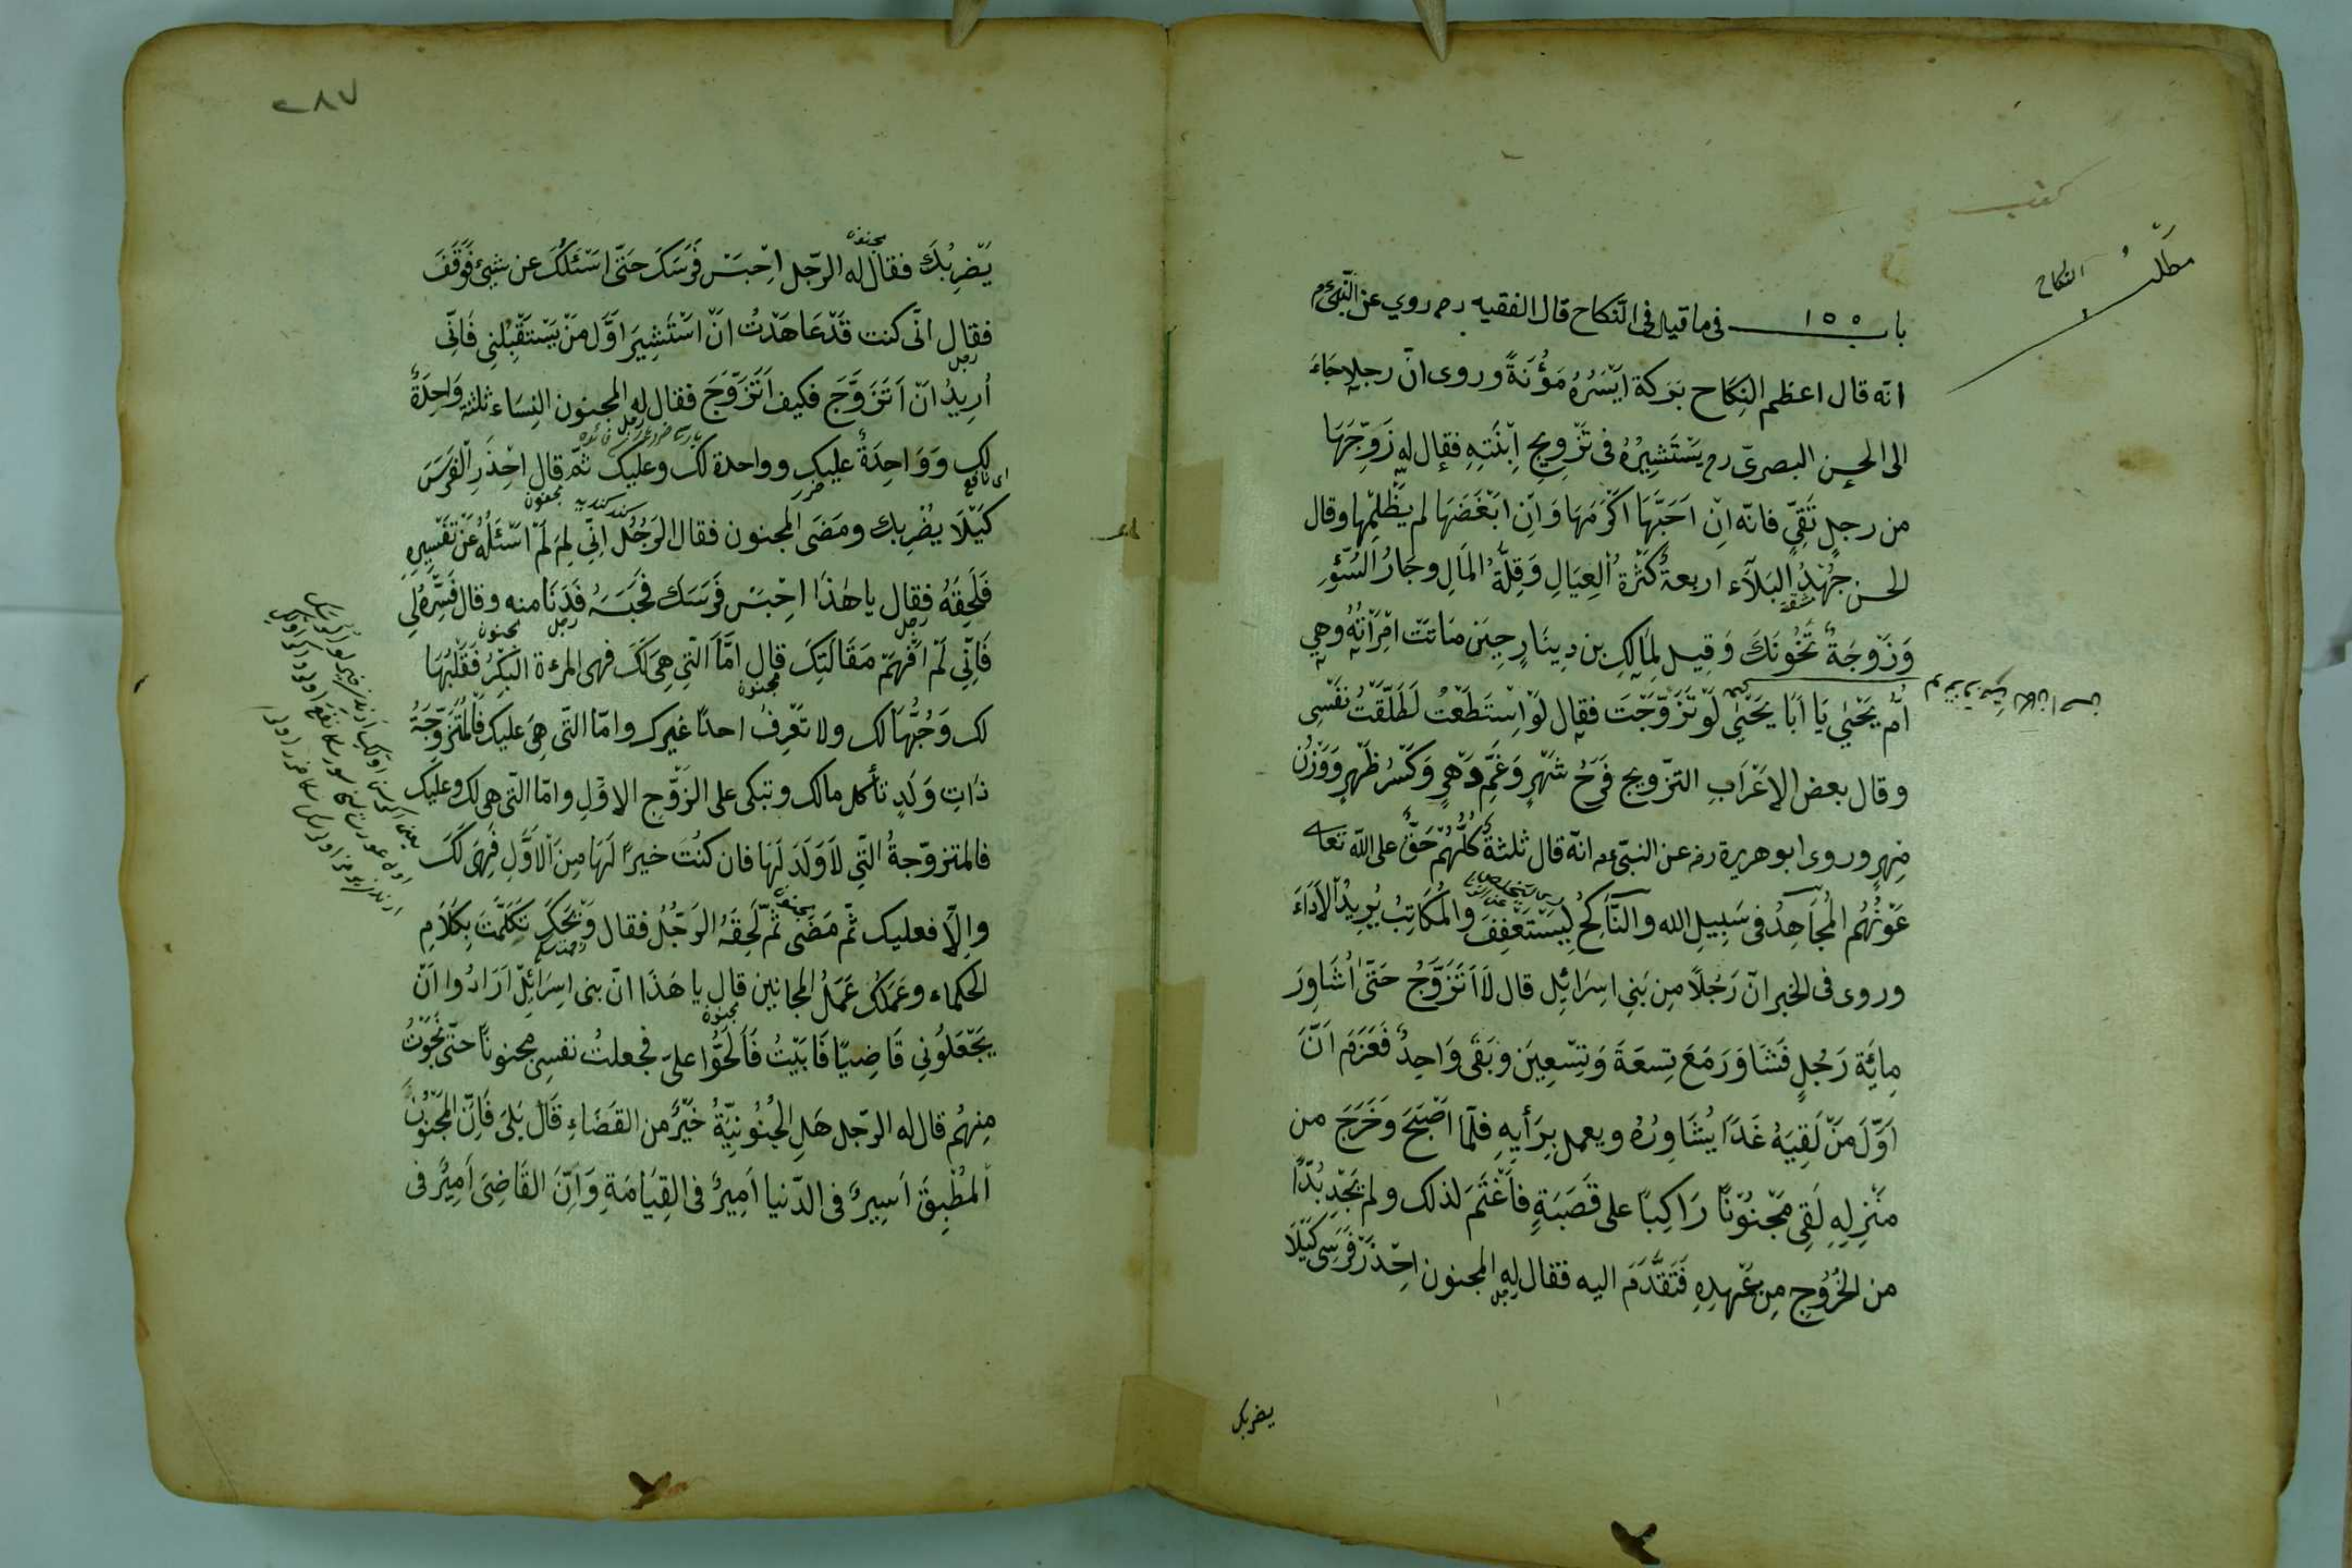 مطلب
النكاح
باب ١٥٥ فى ما قيل فى النّكاح قال الفقيه رح روي عن النّبىّ م
انّه قال اعظم النِكَاح بَرَكة اَيْسَرُهُ مَؤُنَةً وروى انّ رجلا جَاءَ
الى الحسن البصرىّ رح يَسْتَشِيرُهُ فى تَزْوِيجِ اِبْنَتِهِ فقال له زَوِّجْهَا
من رجلٍ تَقِىٍّ فانّه اِنْ اَحَبَّهَا اَكْرَمَهَا وَاِنْ اَبْغَضَهَا لم يَظْلِمْها وقال
الحسن جُهْدُ البَلَآء اربعةٌ كَثْرَةُ العِيَالِ وَقِلَّةُ المَالِ وجَارُ السُّوْءِ
وَزَوجَةٌ تَخُونَكَ وَقِيل لِمَالِكِ بن دِينَارٍ حِينَ مَاتَتْ اِمْرَأتُهُ وهِى
اُمُّ يَحْيٰى يَا اَبَا يَحْيٰى لَوْ تَزَوَّجْتَ فقال لَوْ اِسْتَطَعْتُ لَطَلَّقْتُ نَفْسِى
وقال بعض الاَعْرَابِ التزويج فَرَحُ شَهْرٍ وَغَمُّ دَهْرٍ وَكَسْرُ ظَهْرٍ وَوَزْنُ
مِهْرٍ وروى ابو هريرة رض عن النبىّ عم انّه قال ثلثةٌ كُلُّهُمْ حَقٌّ على اللّه تعا
عَوْنُهُم المُجَاهِدُ فى سَبِيلِ الله والنَّاكِحُ لِيَسْتَعْفِفَ والمُكَاتِبُ يُرِيدُ الاَدَاءَ
وروى فى الخبر انّ رَجُلاً مِن بَنِي اسِرَائِل قال لاَ اَتَزَوَّجُ حَتّٰى اُشَاوِرَ
مِائَة رَجُلٍ فَشَاوَرَ مَعَ تِسعَةَ وَتِسْعِينَ وبَقَى وَاحِدٌ فَعَزَمَ اَنَّ
اَوَّلَ مَنْ لَقِيَهُ غَدًا يُشَاوِرُهُ ويعمل بِرَأيِهِ فلمّا اَصْبَحَ وَخَرَجَ من
مَنْزِلِهِ لَقِى مَجْنُوْنًا رَاكِبًا على قَصَبَةٍ فاَغْتَمَّ لذلك ولم يَجِدْ بُدًّا
من الخُرُوْجِ مِن عَهْدِهِ فَتَقَدَّمَ اليه فقال له المجنون اِحْذَرْ فَرَسِى كَيْلَا
يضربك
٢٨٧
يَضْرِبُكَ فقال له الرّجل اِحْبَسْ فَرَسَكَ حَتّٰى اَسْئَلُكَ عن شيئ فَوَقَفَ
مجنون
فقال انّى كنت قَدْ عَاهَدْتُ انْ اَسْتَشِيرَ اَوَّلَ مَنْ يَسْتَقْبِلُنِى فَاِنِّى
رجل
اُرِيدُ انْ اَتَزَوَّجَ فكيف اَتَزَوَّجَ فقال له المجنون النِسَاء ثلثة وَاحِدَةٌ
لك وَوَاحِدَةٌ عليك وواحدة لك وعليك ثمّ قال اِحْذَرِ الْفَرَسَ
ضرر
مجنون
كَيْلَا يُضْرِبك ومَضَى المجنون فقال الرَجُلُ اِنِّى لِمَ لَمْ اَسْئَلْهُ عَنْ تَفْسِيرِهِ
فَلَحِقَهُ فقال يا هٰذَا اِحْبَسْ فَرَسَكَ فَحَبَسَهُ فَدَنَا منه وقال فَسِّرْهُ لِى
رجل
مجنون
فَاِنِّى لَمْ اَفْهَمْ مَقَالَتَكَ قال اَمَّا الّتِى هِىَ لَكَ فهى المرءة الْبَكْرُ فَقَلْبُهَا
مجنون
لك وَحُبُّهَا لك ولا تَعْرِفُ احدًا غيرك وامّا الّتى هِىَ عليك فَالْمُتَزَوِّجَةُ
ذَاتِ وَلَدٍ تأكل مالك وتبكى على الزَوْجِ الاوّلِ وامّا الّتى هى لك وعليك
فالمتزوّجةُ الّتِى لاَ وَلَدَ لَهَا فان كنْتَ خيرًا لَهَا مِنَ الْاَوَّلِ فَهِىَ لَكَ
وِالاَّ فعليك ثمّ مَضَى ثمّ لَحِقَهُ الرَجُلُ فقال وَيْحَكَ تَكَلَّمْتَ بِكَلَامِ
الحكماء وعَمَلُكَ عَمَلُ المجانين قال يا هَذَا انّ بنى اسِرَائِلْ اَرَادُوا اَنْ
مجنون
يَجْعَلُوْنِي قَاضِيًا فَاَبَيْتُ فَاَلَحُّوا علىّ فجعلتُ نفسِى مجنونًا حتّى نَجَوْتُ
مِنهُم قال له الرّجل هَلِ الجُنُونِيَّةُ خَيْرٌ من القَضَاءِ قَالَ بَلَى فَاِنَّ المَجْنُوْنَ
المُطْبِقَ اَسِيرٌ فى الدّنيا اَمِيرٌ فى القِيَامَةِ وَاِنَّ القَاضِىَ اَمِيْرٌ فى